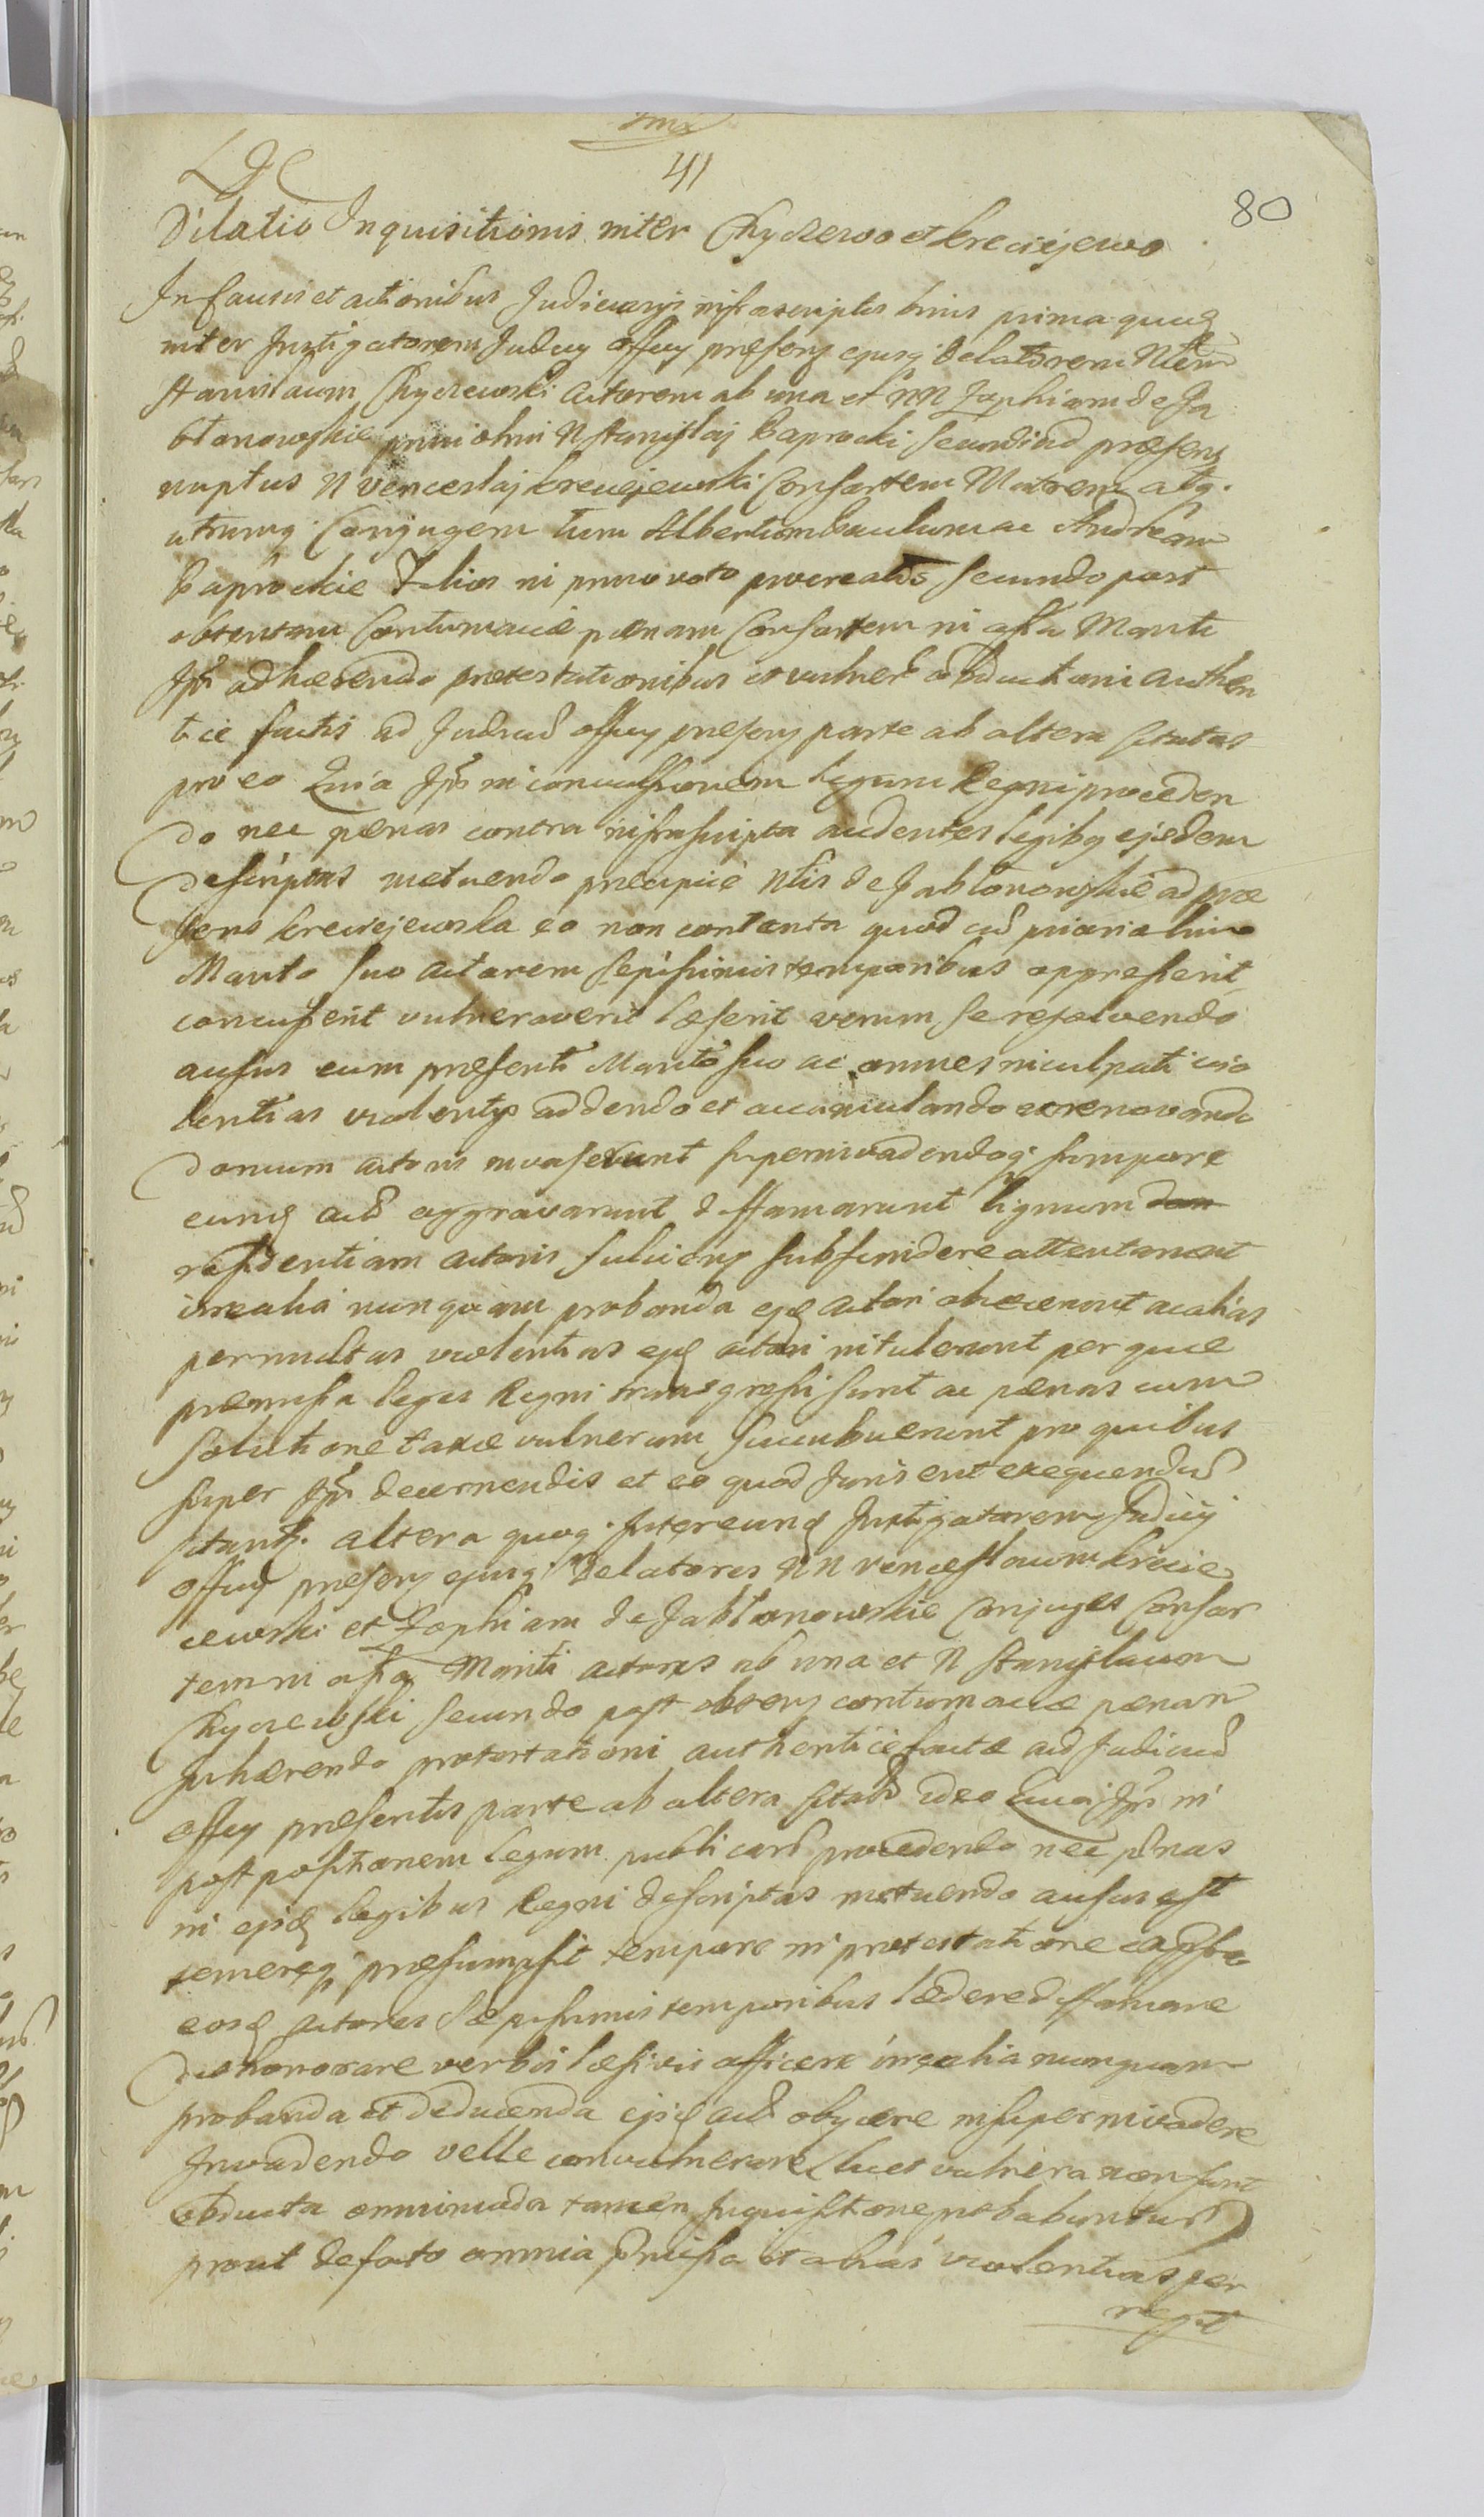 41
80
Dilatio Inquisitionis inter Chyczewo et Kreciejewo
In Causis et actionibus Judiciarijs infrascriptis binis prima quid
inter Instigatorem Judicij Offcij præsens ejusq Delatorem Nlem
Stanislaum Chyczewski Actorem ab una et NN Zophiam de Ja
błonowskie primi olim N Stanislaj Paprocki secundi ad præsens
nuptus N Venceslaj Kreciejewski Consortem Matrem atq.
utrumq. Conjugem tum Albertum Paulum ac Andream
Paprockie Filios in primo voto procreatos, secundo post
obtentam Contumaciæ pænam Consortem in assa Mariti
Ips adhærendo protestationibus et vulner obductioni authen
tice factis ad Judiciu offcij præsens parte ab altera Citatas
pro eo Quia Ipsi in convulsionem legum Regni proceden
do nec pænas contra infrascripta audentes legibq ejsdem
descriptas metuendo præcipuè Nlis de Jabłonowskie ad præ
sens Kreciejewska eo non contenta quod cu priori olim
Marito suo actorem sepissimis temporibus oppresserit
concusserit vulneraverit læserit verum se resolvendo
ausus cum præsenti Marito suo ac omnes inculpati vio
lentias violentijs addendo et accumulando ac renovando
domum actoris invaserunt superinvadendoq. tempore
eund act aggravarunt diffamarunt lignum dom
residentiam actoris fulciens subscindere attentarunt
irrealia nunquam probanda ejd actori objecerunt ac alias
permultas violentias ejd actori intulerunt per quæ
præmissa leges Regni transgressi sunt ac pænas cum
solutione taxæ vulnerum succubuerunt pro quibus
super Ips decernendis et eo quod Juris erit exequendu
citantr. altera quoq. Intereund Instigatorem Judicij
offcij præsens ejusq Delatores NN Venceslaum Krecie
jewski et Zophiam de Jabłonowskie Conjuges Consor
tem in assa Mariti actores ab una et N Stanislaum
Chyczewski secundo post obtens contumaciæ pænam
Inhærendo protestationi authentice factæ ad Judiciu
offcij præsentis parte ab altera Citatu ideo Quia Ips in
postpositionem legum publicaru procedendo nec pænas
in ejsd legibus Regni descriptas metuendo ausus est
temereq præsumpsit tempore in protestatione expsso
eosd actores sæpissimis temporibus lædere diffamare
dishonorare verbis læsivis afficere irrealia nunquam
probanda et deducenda ejsd act objicere insuper invadere
Invadendo velle convulnerare (licet vulnera non sunt
obducta omnimoda tamen Inquisitione probabuntur)
prout de facto omnia præmissa et alias violentias per